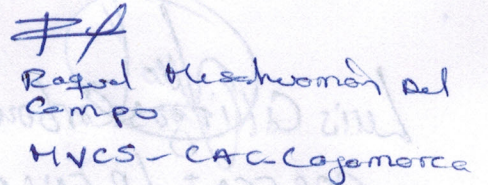 Raquel Mesahuamán Del
Campo
MVCS - CAC Cajamarca